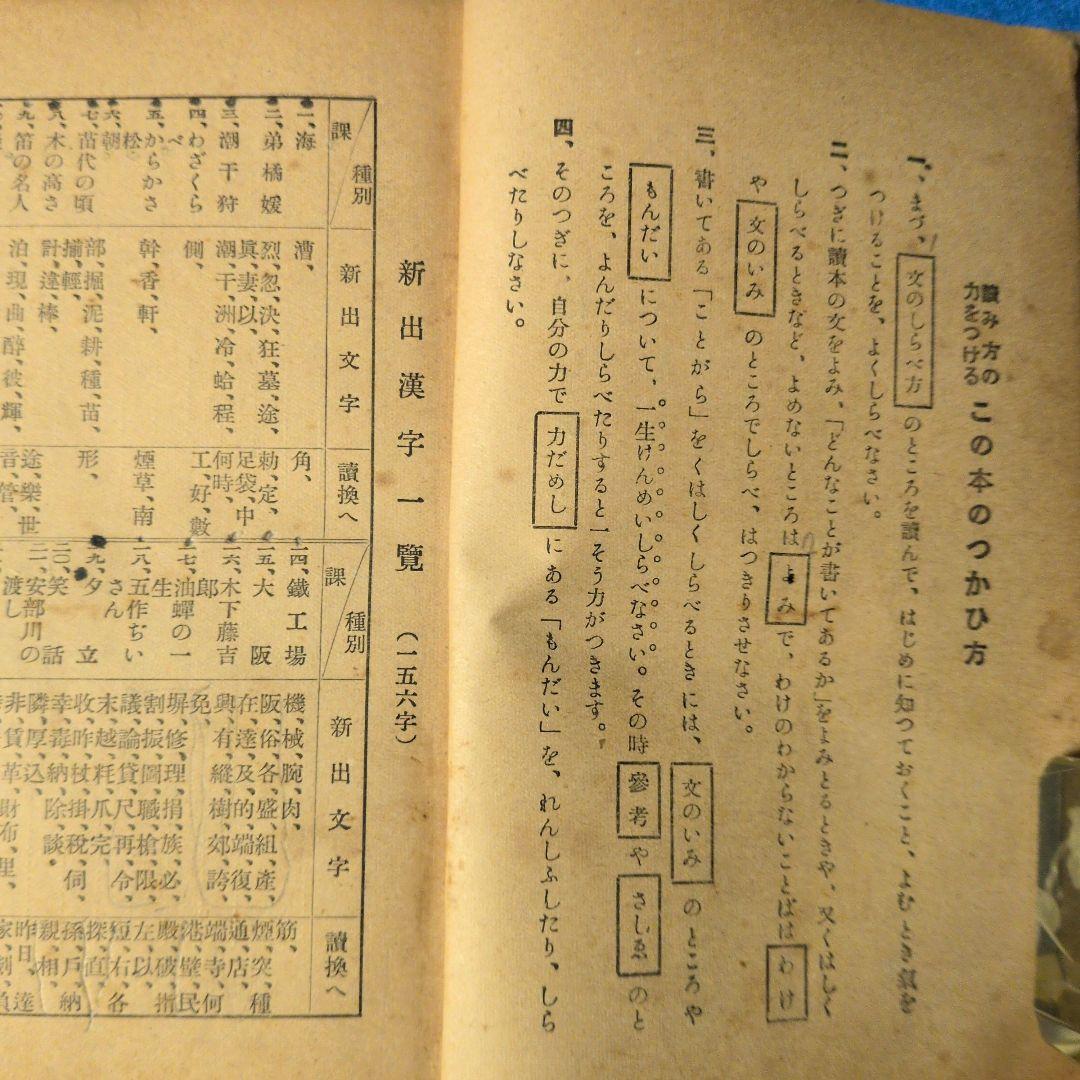 讀み方の
力をつける この本のつかひ方
一、まづ、文のしらべ方のところを讀んで、はじめに知つておくこと、よむとき氣を
つけることを、よくしらべなさい。
二、つぎに讀本の文をよみ、「どんなことが書いてあるか」をよみとるときや、又くはしく
しらべるときなど、よめないところはよみで、わけのわからないことばはわけ
や文のいみのところでしらべ、はつきりさせなさい。
三、書いてある「ことがら」をくはしくしらべるときには、文のいみのところや
もんだいについて、一生けんめいしらべなさい。その時參考やさしゑのと
ころを、よんだりしらべたりすると一そう力がつきます。
四、そのつぎに、自分の力で力だめしにある「もんだい」を、れんしふしたり、しら
べたりしなさい。
新出漢字一覽(一五六字)
課 種別 新出文字 讀換へ
一、海 漕、 角、
二、弟橘媛 烈、忽、決、狂、墓、途、眞、妻、以、 勅、定、
三、潮干狩 潮、干、洲、冷、蛤、程、 足袋、中何時、
四、わざくらべ 側、 工、好、數
五、からかさ松 幹、香、軒、 煙草、南
六、朝
七、苗代の頃 部、掘、泥、耕、種、苗、捕、輕、 形、
八、木の高さ 計、違、棒、
九、笛の名人 泊、現、曲、醉、彼、輝、 途、樂、世音、管、
課 種別 新出文字 讀換へ
一四、鐵工場 機、械、腕、肉、 筋、
一五、大阪 阪、俗、各、盛、組、產、在、達、及、的、端、復、 煙突、種通、店、
一六、木下藤吉郎 興、有、縱、樹、郊、誇、免、 端、寺、何
一七、油蟬の一生 塀、修、理、捐、族、必、 港、壁、民
一八、五作ぢいさん 割、振、圖、職、槍、限、議、論、貸、尺、再、令、 殿、破、指左、以、
一九、夕立 末、越、耗、爪、完、 短、右、各
二〇、笑話 收、昨、杖、掛、稅、伺、幸、毒、納、除、談、 探、直、孫、戶、納
二一、安部川の渡し 隣、厚、込、非、賃、革、財、布、里、 親、相、昨日、